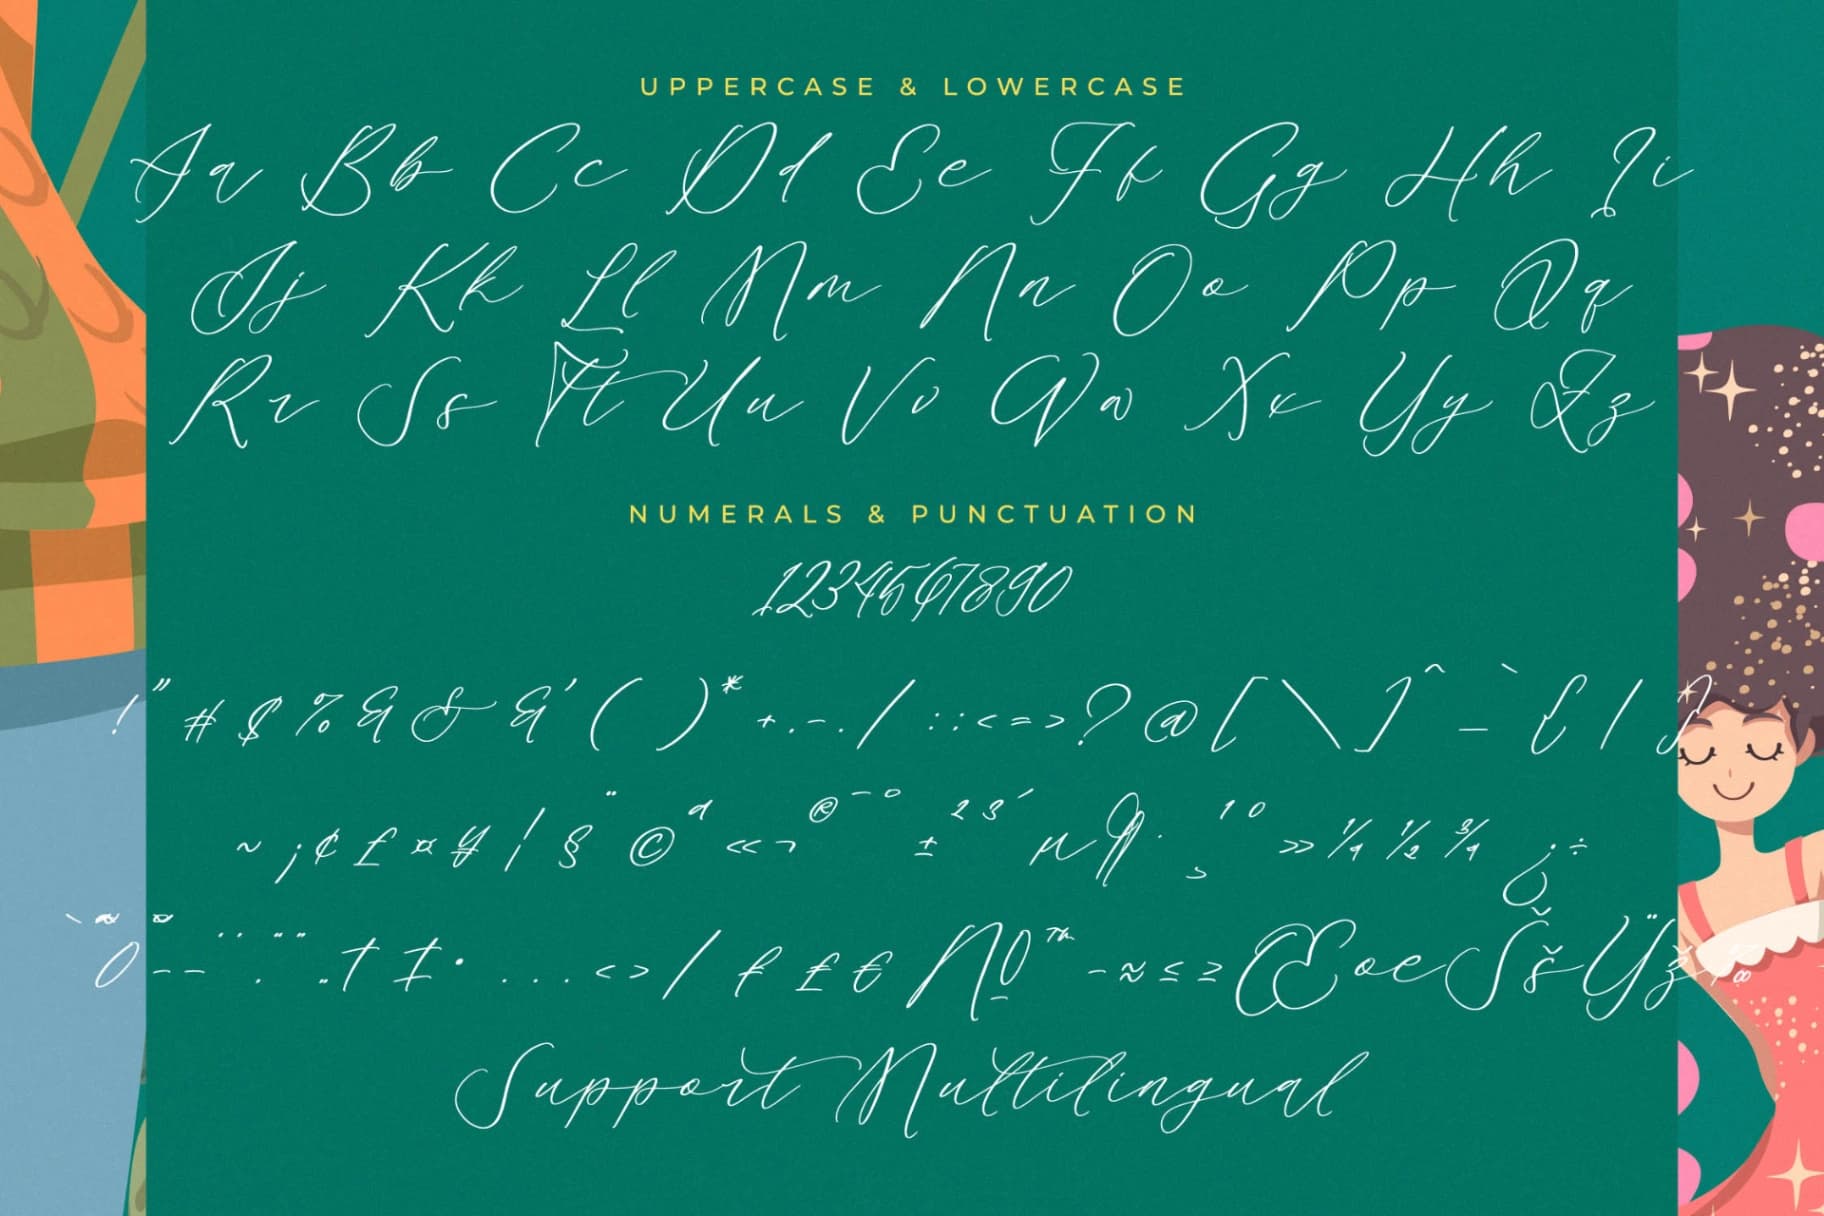 UPPERCASE & LOWERCASE
Aa Bb Cc Dd Ee Ff Gg Hh Ii
Jj Kk Ll Mm Nn Oo Pp Qq
Rr Ss Tt Uu Vv Ww Xx Yy Zz
NUMERALS & PUNCTUATION
1234567890
! " # $ % & & & ' ( ) * + . - . / : : < = > ? @ [ \ ] ^ _ ` { | }
~ ¡ ¢ £ ¤ ¥ | § ¨ © ª « ¬ ® ¯ ° ± 2 3 ´ µ ¶ · ¸ 1 0 » 1/4 1/2 3/4 ¿ ÷
0 – – . „ † ‡ • . . . < > / ₣ ₤ € № ™ − ≈ ≤ ≥ Œ œ Š š Ÿ ž
Support Multilingual